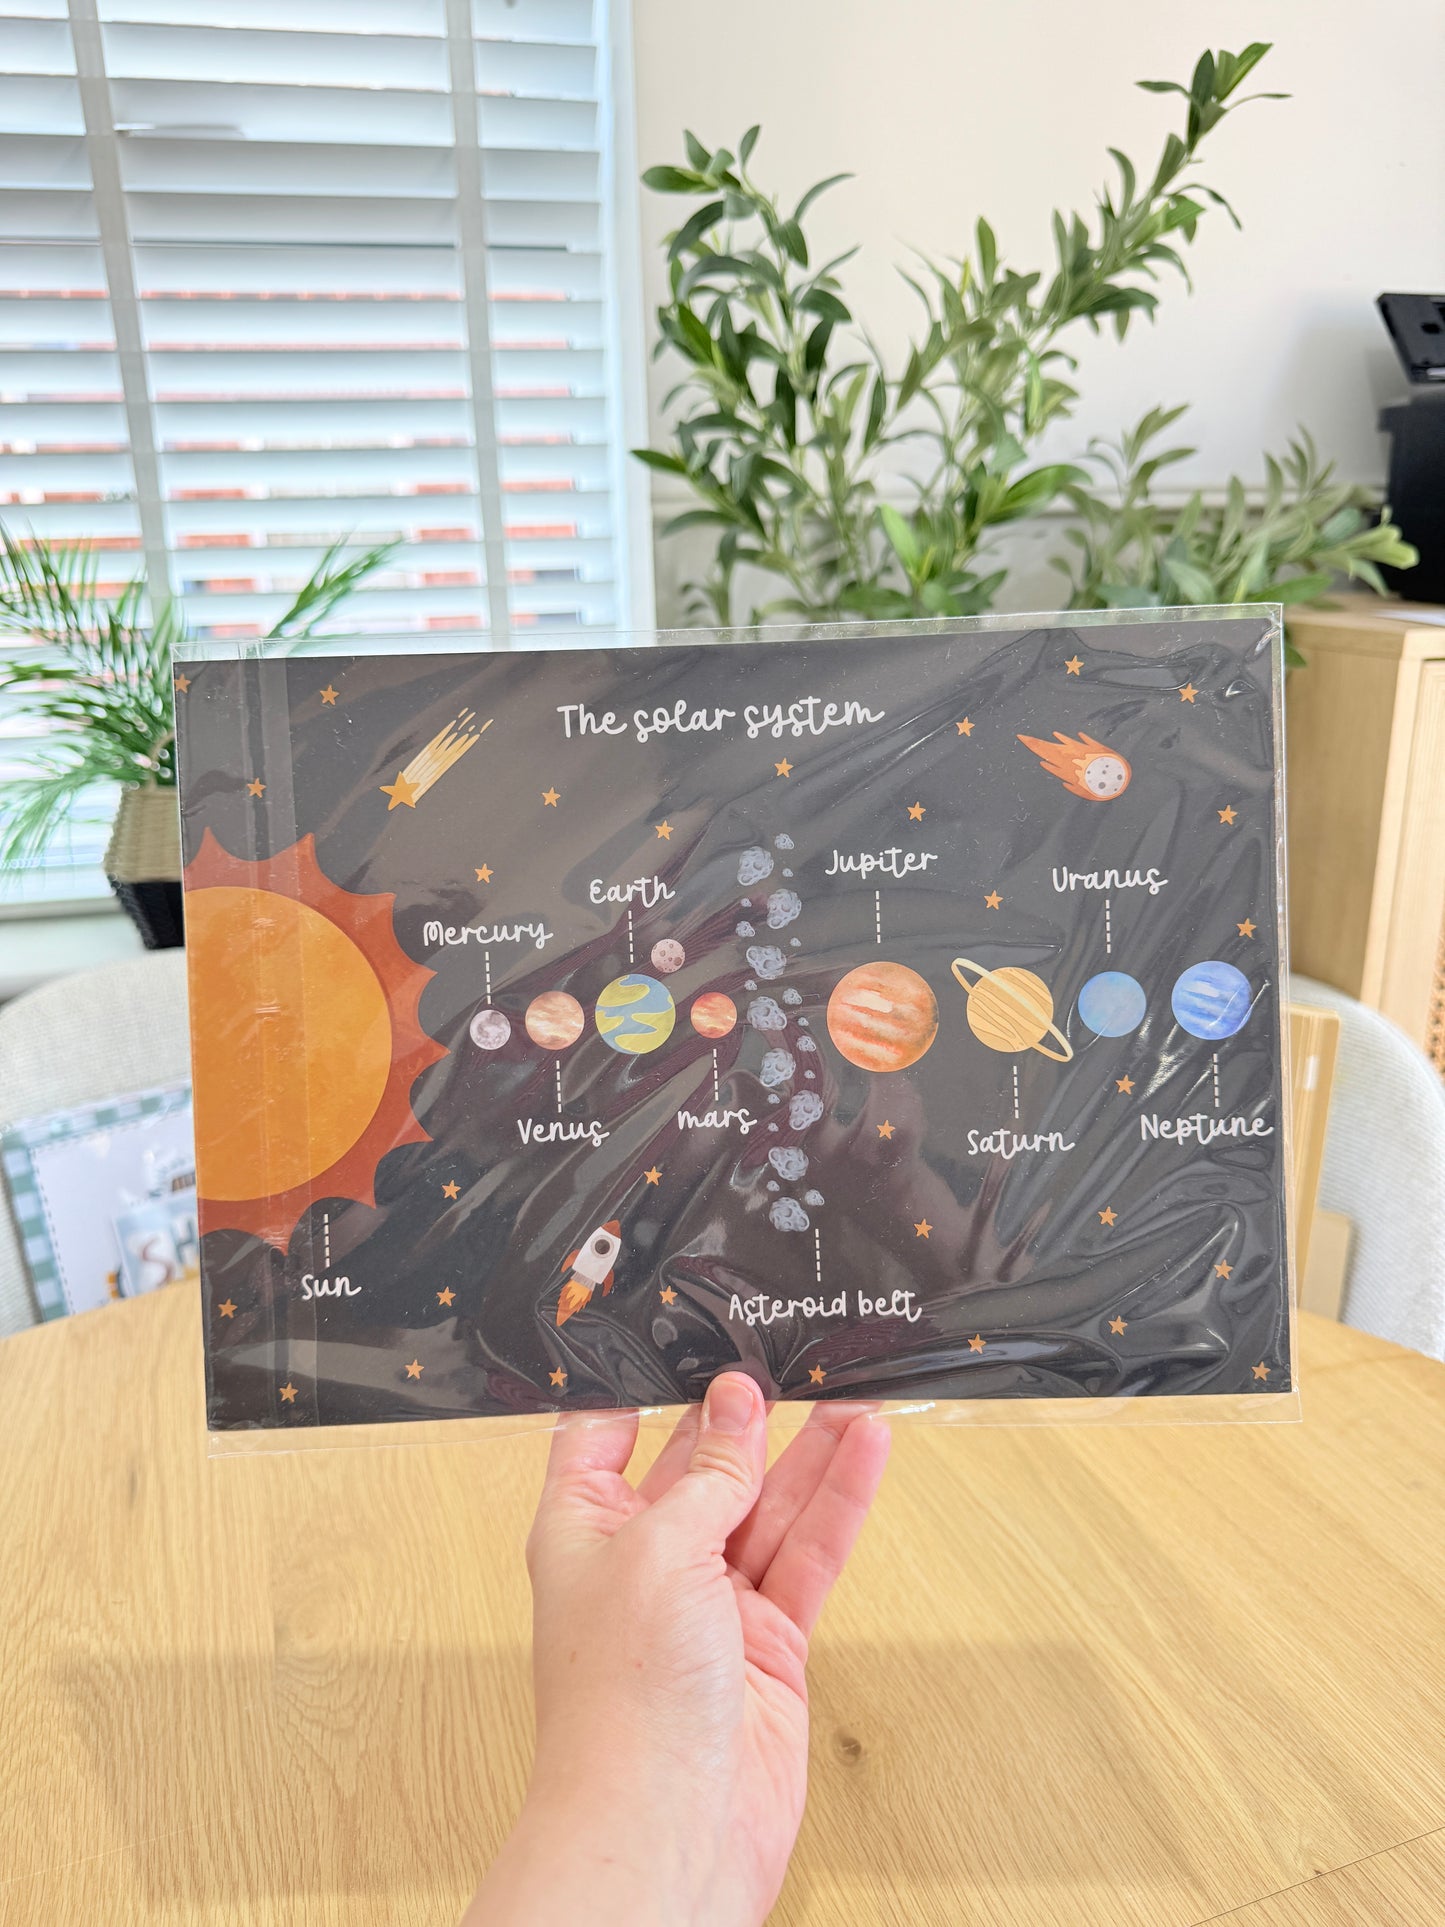 The solar system
Jupiter
Uranus
Earth
Mercury
Venus
mars
Saturn
Neptune
Sun
Asteroid belt